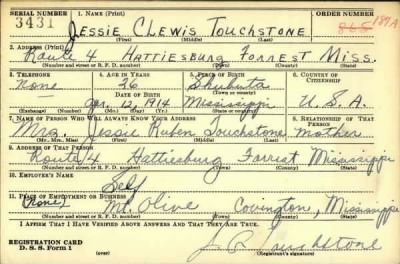 SERIAL NUMBER 1. NAME (Print) ORDER NUMBER
3431 Jessie Clewis Touchstone 865 189A
(First) (Middle) (Last)
2. ADDRESS (Print)
Route 4 Hattiesburg Forrest Miss.
(Number and street or R. F. D. number) (Town) (County) (State)
3. TELEPHONE 4. AGE IN YEARS 5. PLACE OF BIRTH 6. COUNTRY OF CITIZENSHIP
None 26 Shubuta
DATE OF BIRTH (Town or county)
Jan. 12, 1914 Mississippi U.S.A.
(Exchange) (Number) (Mo.) (Day) (Yr.) (State or country)
7. NAME OF PERSON WHO WILL ALWAYS KNOW YOUR ADDRESS 8. RELATIONSHIP OF THAT PERSON
Mrs. Jessie Ruben Touchstone mother
(Mr., Mrs., Miss) (First) (Middle) (Last)
9. ADDRESS OF THAT PERSON
Route 4 Hattiesburg Forrest Mississippi
(Number and street or R. F. D. number) (Town) (County) (State)
10. EMPLOYER'S NAME
Self
11. PLACE OF EMPLOYMENT OR BUSINESS
(None) Mt. Olive Covington, Mississippi
(Number and street or R. F. D. number) (Town) (County) (State)
I AFFIRM THAT I HAVE VERIFIED ABOVE ANSWERS AND THAT THEY ARE TRUE.
REGISTRATION CARD
D. S. S. Form 1 J. C. Touchstone